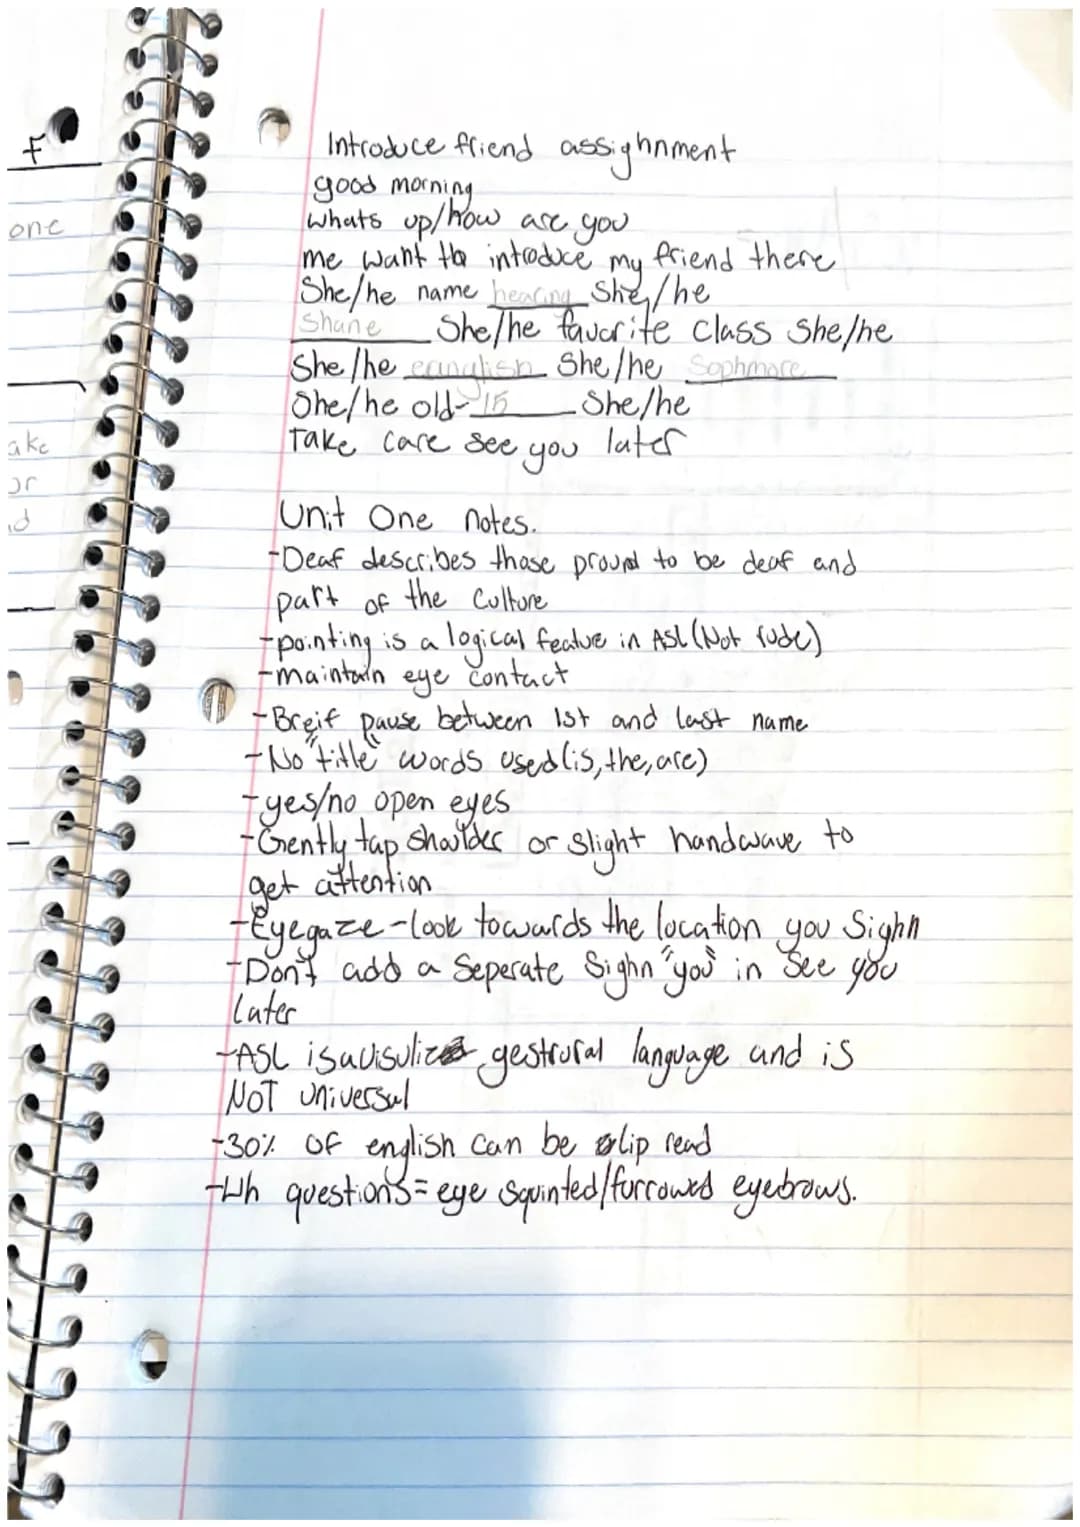 F
one
ake
or
d
Introduce friend assighnment
good morning
whats up/how are you
me want to introduce my friend there
She/he name hearing She/he
Shane She/he favorite class She/he
She/he eanglish She/he Sophmore
She/he old-15 She/he
Take care see you later
Unit One notes.
-Deaf describes those proud to be deaf and
part of the Culture
-pointing is a logical featue in ASL (Not rude)
-maintain eye contact
-Breif pause between 1st and last name
-No "title" words used (is, the, are)
-yes/no open eyes
-Gently tap shoulder or slight handwave to
get attention
-Eyegaze-look towards the location you Sighn
-Don't add a Seperate Sighn "you" in See you
Later
-ASL is a visulize gestrural language and is
NOT universal
-30% of english can be lip read
-Wh questions = eye squinted/furrowed eyebrows.